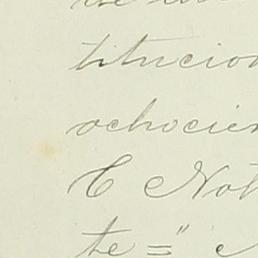 titucion
ochocien
E Not
te="